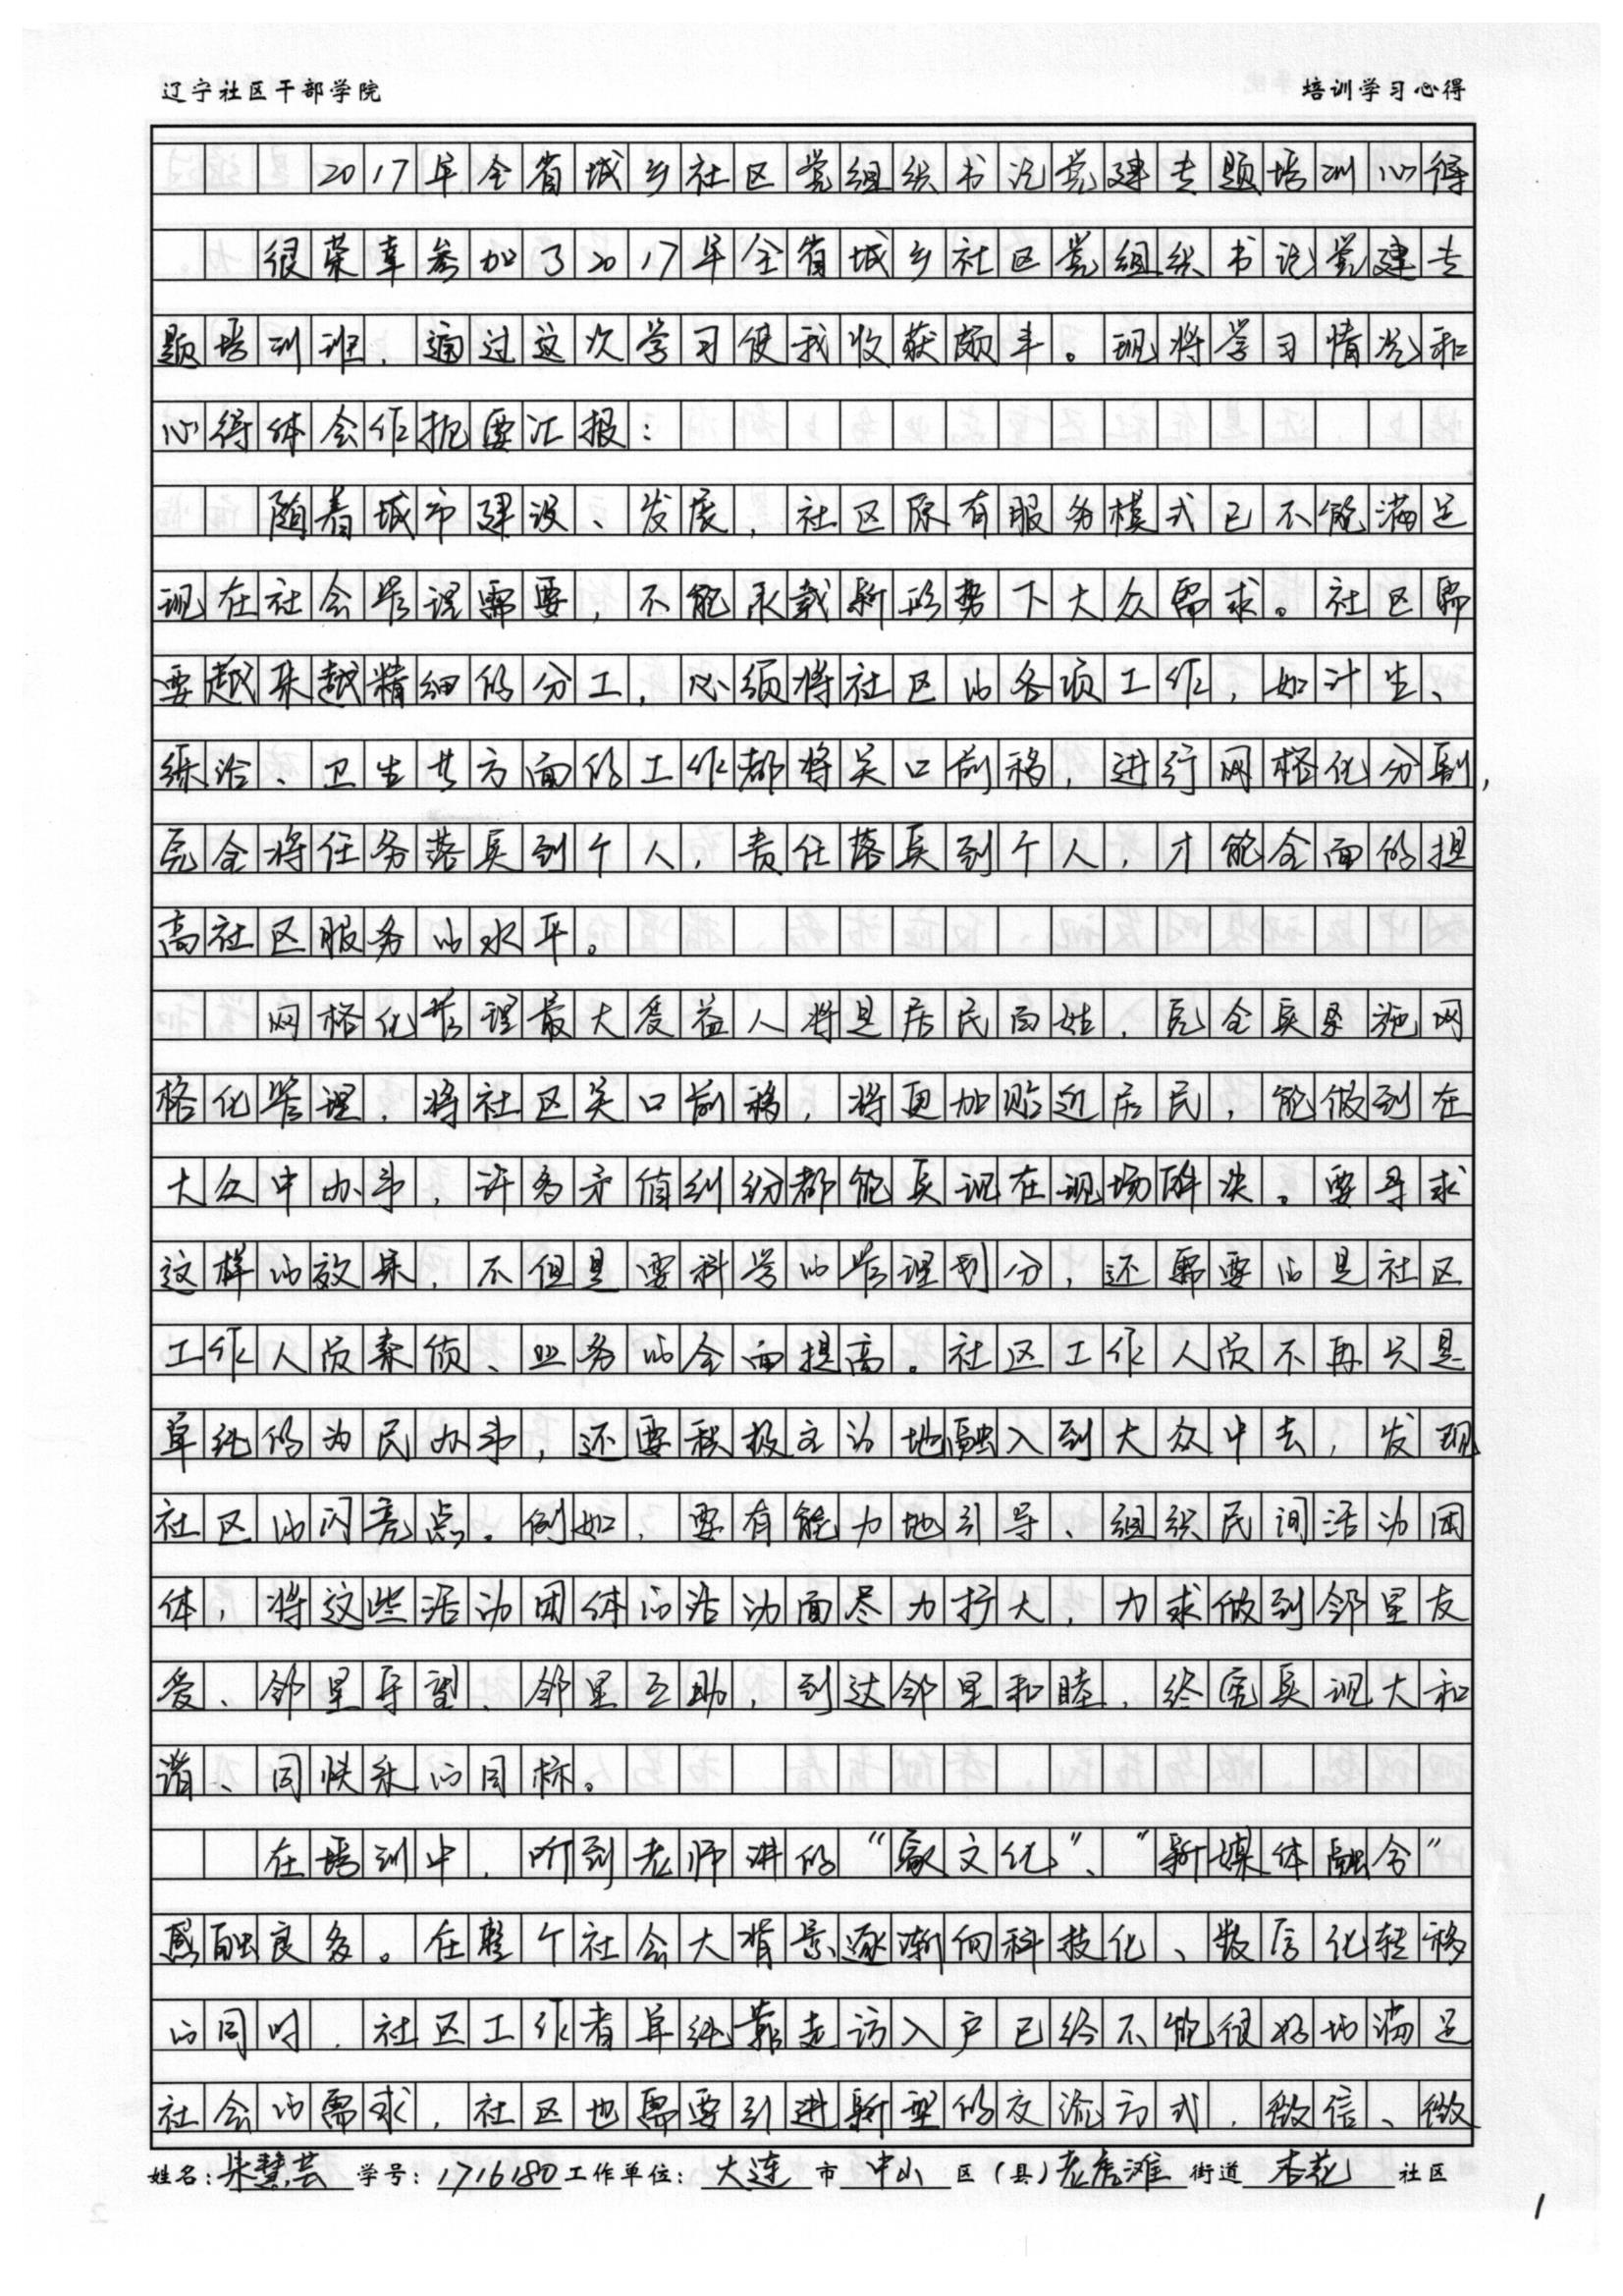 辽宁社区干部学院 培训学习心得
2017年全省城乡社区党组织书记党建专题培训心得
很荣幸参加了2017年全省城乡社区党组织书记党建专
题培训班，通过这次学习使我收获颇丰。现将学习情况和
心得体会作扼要汇报：
随着城市建设、发展，社区原有服务模式已不能满足
现在社会管理需要，不能承载新形势下大众需求。社区需
要越来越精细的分工，必须将社区的各项工作，如计生、
综治、卫生共方面的工作都将关口前移，进行网格化分割，
完全将任务落实到个人，责任落实到个人，才能全面的提
高社区服务的水平。
网格化管理最大受益人将是居民百姓，完全实施网
格化管理，将社区关口前移，将更加贴近居民，能做到在
大众中办事，许多矛盾纠纷都能实现在现场解决。要寻求
这样的效果，不但是要科学的管理划分，还需要的是社区
工作人员素质、业务的全面提高。社区工作人员不再只是
单纯的为民办事，还要积极主动地融入到大众中去，发现
社区的闪亮点。例如，要有能力地引导、组织民间活动团
体，将这些活动团体的活动面尽力扩大，力求做到邻里友
爱、邻里守望、邻里互助，到达邻里和睦，终究实现大和
谐、同快乐的目标。
在培训中，听到老师讲的“家文化”、“新媒体融合”
感触良多。在整个社会大背景逐渐向科技化、数字化转移
的同时，社区工作者单纯靠走访入户已经不能很好地满足
社会的需求，社区也需要引进新型的交流方式，微信、微
姓名：朱慧芸 学号：1716180 工作单位：大连市 中山 区（县）老虎滩 街道 杏花 社区
1